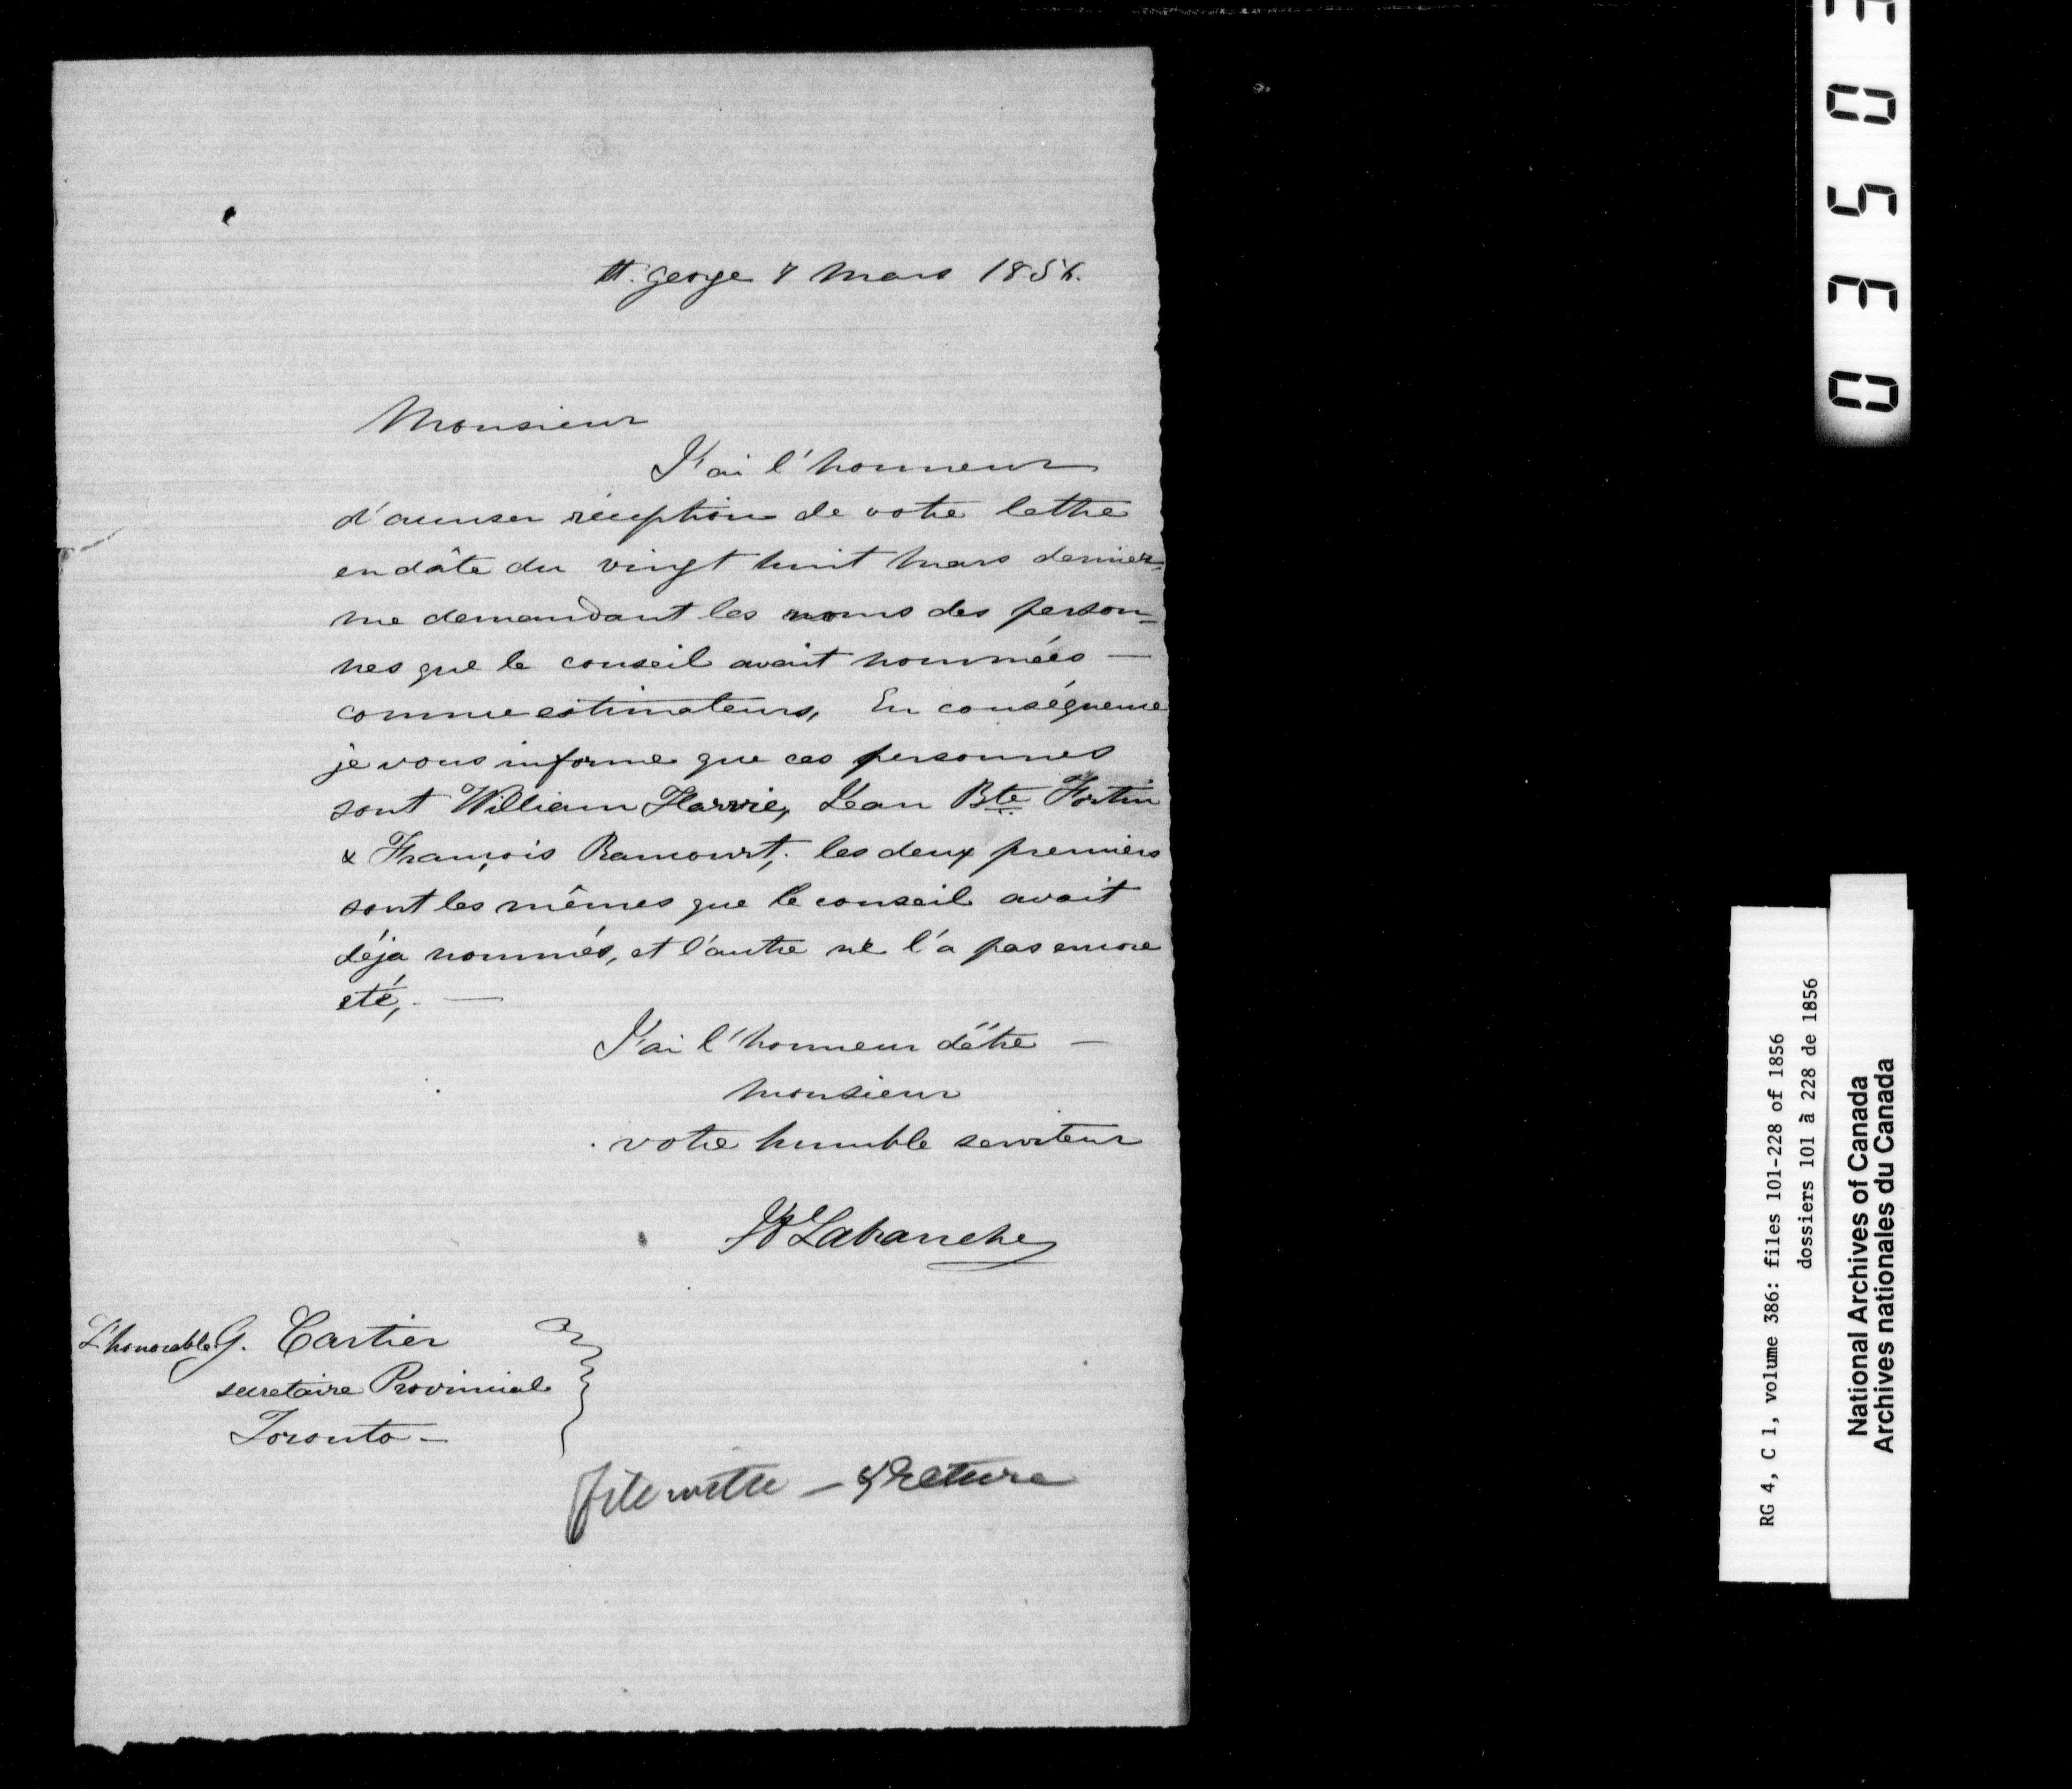 St. George 7 Mars 1856.
Monsieur
J'ai l'honneur
d'accuser réception de votre lettre
en dâte du vingt huit Mars dernier
me demandant les noms des person=
nes que le conseil avait nommées —
comme estimateurs, En conséquence
je vous informe que ces personnes
sont William Harvie, Jean Bte Fortin
& François Rancourt; les deux premiers
sont les mêmes que le conseil avait
déja nommés, et l'autre ne l'a pas encore
été,. —
J'ai l'honneur d'être —
Monsieur
votre humble serviteur
Labranche
L'honorable G. Cartier
secretaire Provincial
Toronto —
file with — & return
0350
RG 4, C 1, volume 386: files 101-228 of 1856
dossiers 101 à 228 de 1856
National Archives of Canada
Archives nationales du Canada